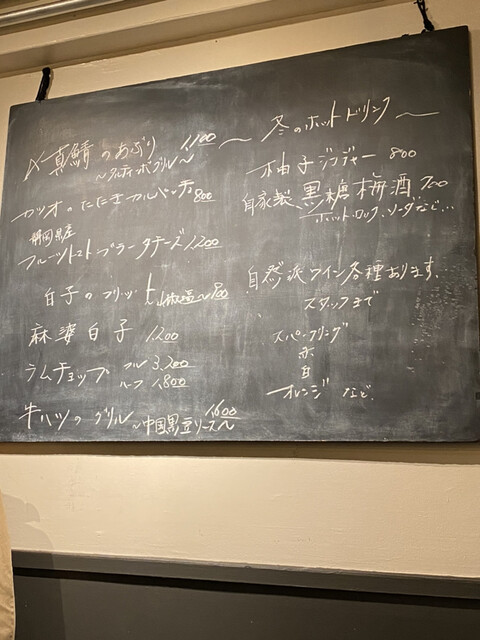 〆真鯖のあぶり 1,100
カツオのたたきカルパッチョ 800
静岡県産
フルーツトマトブラータチーズ 1,200
白子のフリット 〜800
麻婆白子 1,200
ラムチョップ フル 3,200
ハーフ 1,800
牛ハツのグリル 〜中国黒豆ソース〜 1,600
〜冬のホットドリンク〜
柚子ジンジャー 800
自家製黒糖梅酒 700
ホット、ロック、ソーダなど...
自然派ワイン各種あります。
スタッフまで
スパークリング
赤
白
オレンジ など